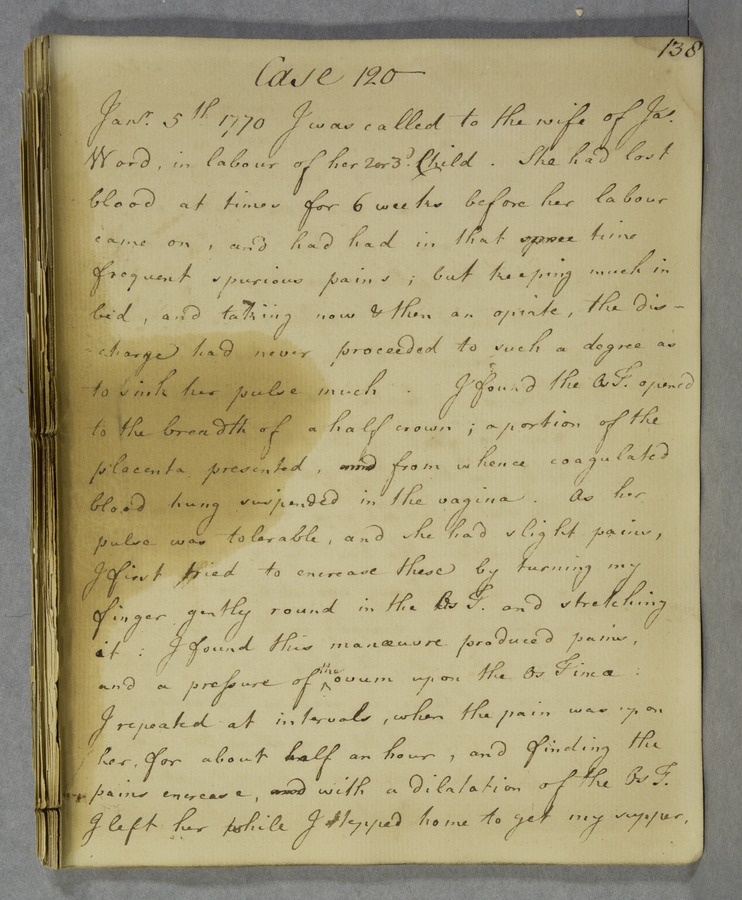 138
Case 120
Janr. 5th 1770 I was called to the wife of Jas.
Word, in labour of her 2 or 3d. Child. She had lost
blood at times for 6 weeks before her labour
came on, and had had in that time
frequent spurious pains; but keeping much in
bed, and taking now & then an opiate, the dis-
-charge had never proceeded to such a degree as
to sink her pulse much. I found the Os T. opened
to the breadth of a half crown; a portion of the
placenta presented, and from whence coagulated
blood hung suspended in the vagina. As her
pulse was tolerable, and she had slight pains,
I first tried to encrease these by turning my
finger gently round in the Os T. and stretching
it: I found this manœuvre produced pains,
and a pressure of the ovum upon the Os Tincæ:
I repeated at intervals, when the pain was upon
her, for about half an hour, and finding the
pains encrease, and with a dilatation of the Os T.
I left her while I stepped home to get my supper,